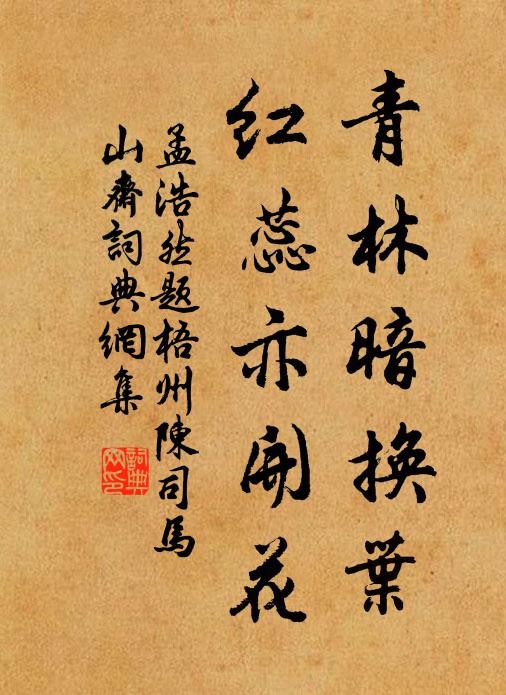 青林暗換葉
紅蕊亦開花
孟浩然題梧州陳司馬
山齋詞典網集
詞典
网印